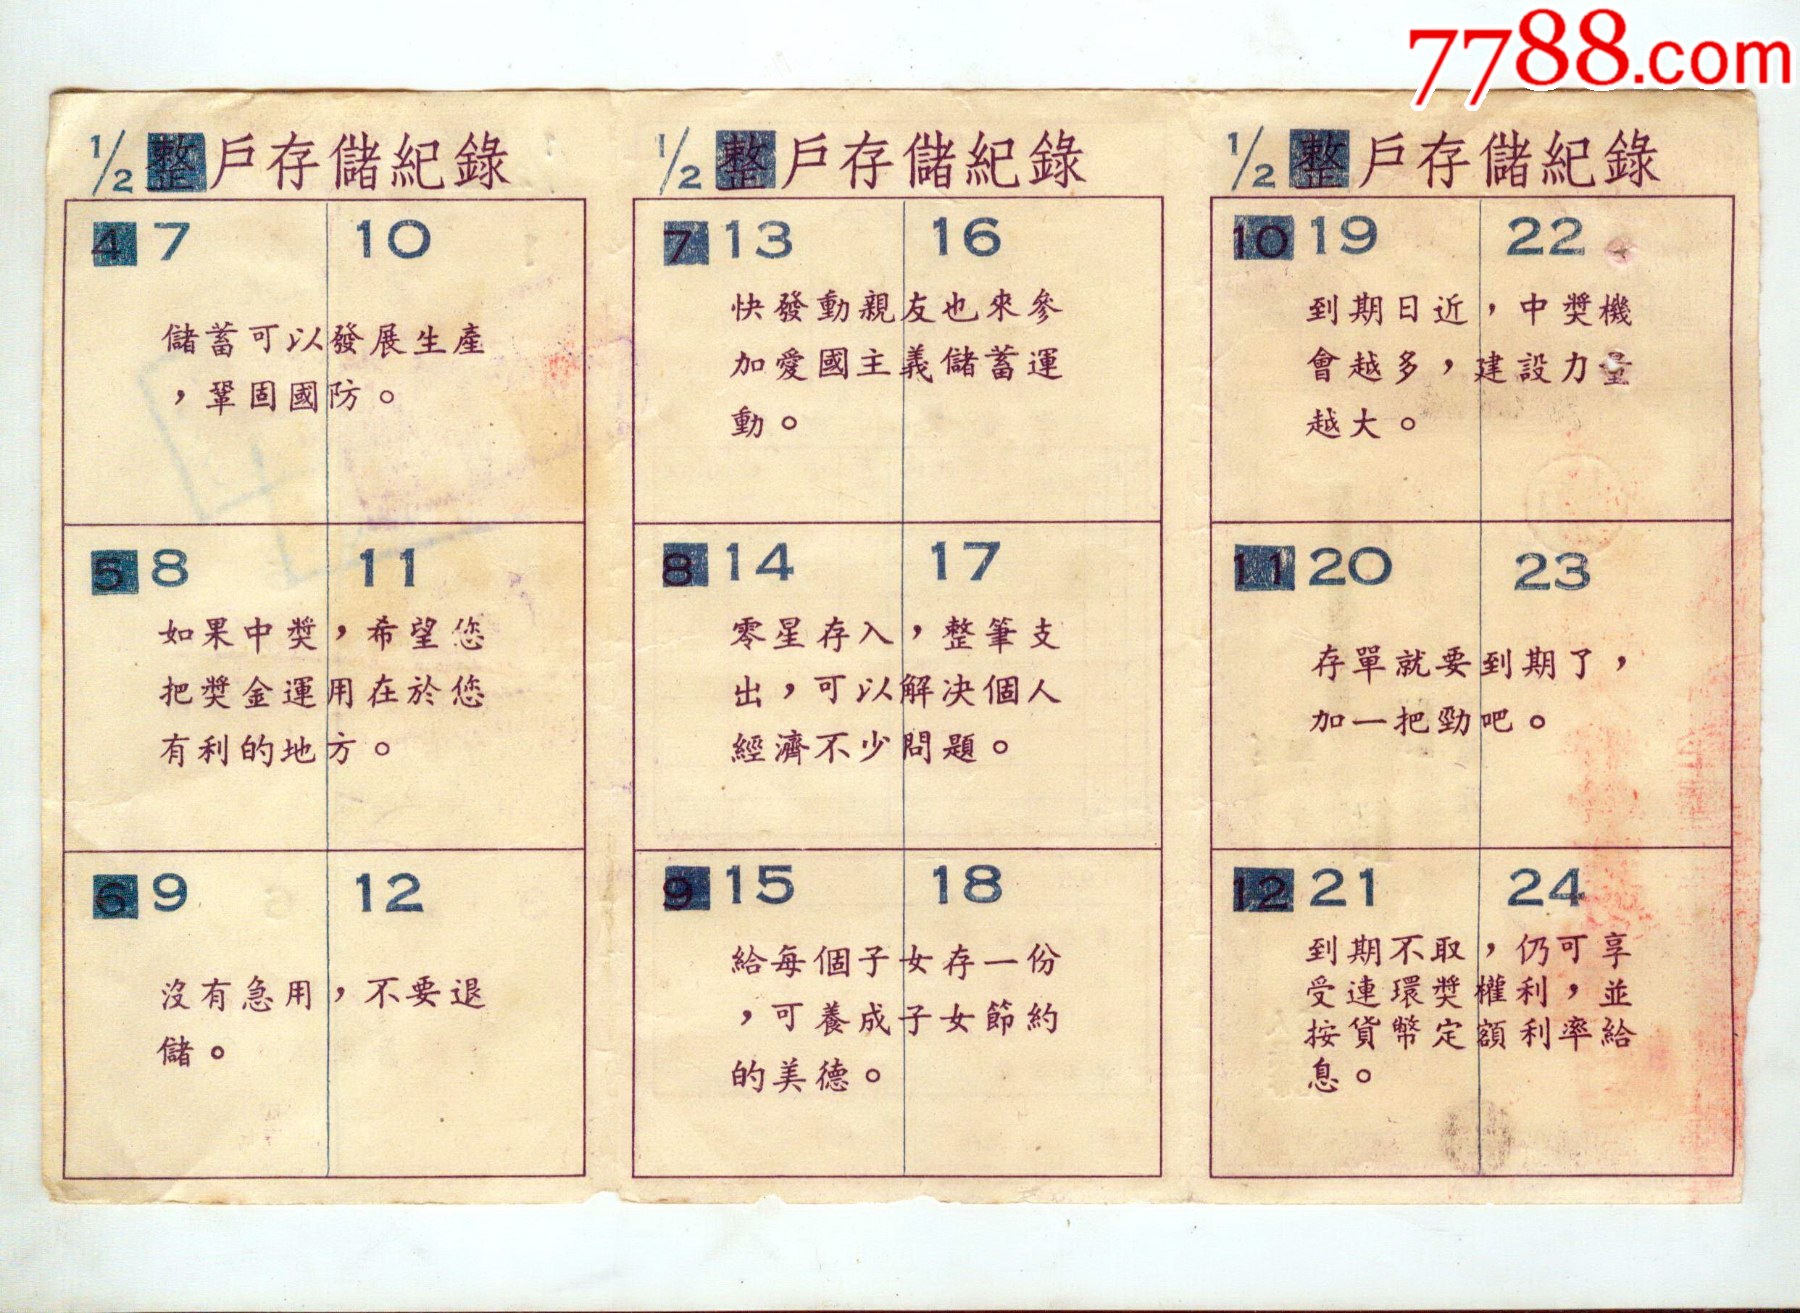 7788.com
1/2 整戶存儲紀錄
4 7 10
儲蓄可以發展生產
，鞏固國防。
5 8 11
如果中獎，希望您
把獎金運用在於您
有利的地方。
6 9 12
沒有急用，不要退
儲。
1/2 整戶存儲紀錄
7 13 16
快發動親友也來參
加愛國主義儲蓄運
動。
8 14 17
零星存入，整筆支
出，可以解决個人
經濟不少問題。
9 15 18
給每個子女存一份
，可養成子女節約
的美德。
1/2 整戶存儲紀錄
10 19 22
到期日近，中獎機
會越多，建設力量
越大。
11 20 23
存單就要到期了，
加一把勁吧。
12 21 24
到期不取，仍可享
受連環獎權利，並
按貨幣定額利率給
息。